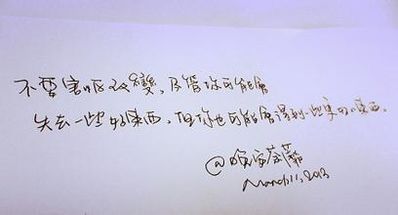 不要害怕改變,尽管你可能會
失去一些好東西,但你也可能會得到一些更好的東西。
@晚安
March 11, 2013